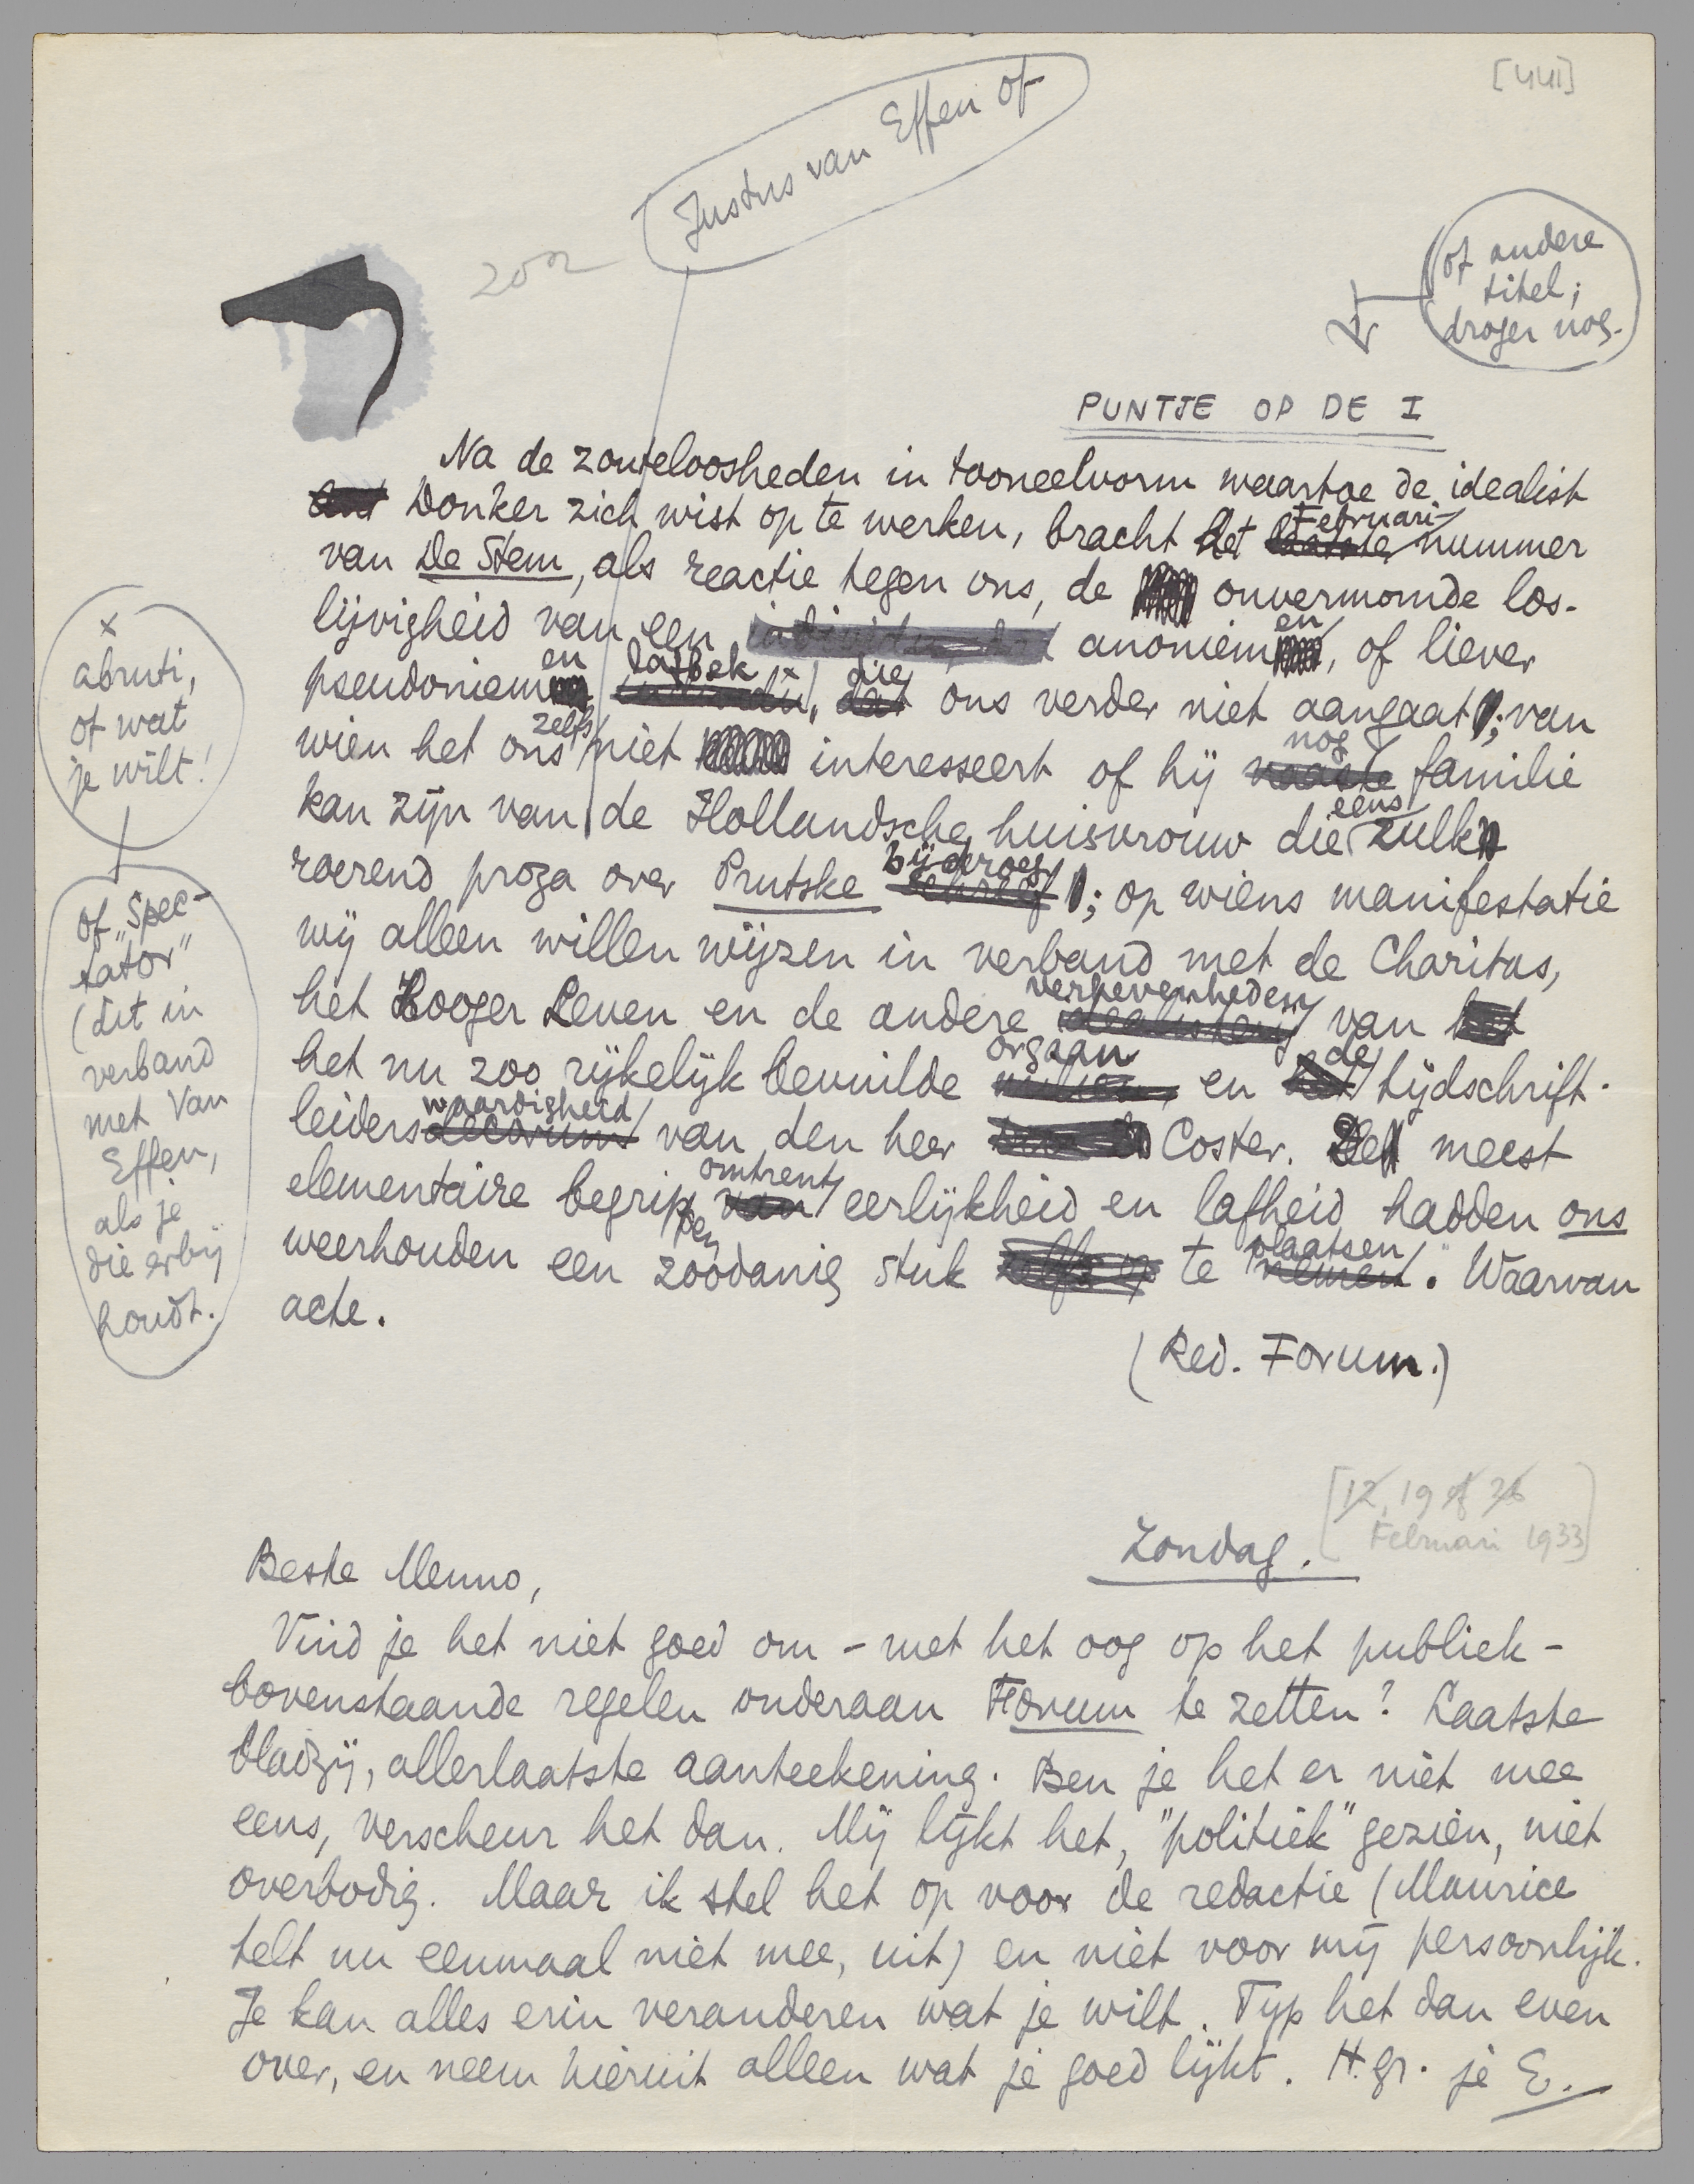 [441]
Justus van Effen of
of andere
titel;
droger nog.
PUNTJE OP DE I
Na de zouteloosheden in tooneelvorm waartoe de idealist
Donker zich wist op te werken, bracht het Februari-nummer
van De Stem, als reactie tegen ons, de onvermomde los-
lijvigheid van een anoniemen, of liever
pseudoniemen lafbek x, die ons verder niet aangaat; van
wien het ons zelfs niet interesseert of hij nog familie
kan zijn van de Hollandsche huisvrouw die eens zulk
roerend proza over Prutske bijdroeg; op wiens manifestatie
wij alleen willen wijzen in verband met de Charitas,
het Hooger Leven en de andere verhevenheden van
het nu zoo rijkelijk bevuilde orgaan en de tijdschrift-
leiderswaardigheid van den heer Coster. De meest
elementaire begrippen omtrent eerlijkheid en lafheid hadden ons
weerhouden een zoodanig stuk te plaatsen. Waarvan
acte.
(Red. Forum.)
x
abruti,
of wat
je wilt!
of "Spec-
tator"
(dit in
verband
met Van
Effen,
als je
die erbij
houdt.
Zondag.
[12, 19 of 26
Februari 1933]
Beste Menno,
Vind je het niet goed om - met het oog op het publiek -
bovenstaande regelen onderaan Forum te zetten? Laatste
bladzij, allerlaatste aanteekening. Ben je het er niet mee
eens, verscheur het dan. Mij lijkt het, "politiek" gezien, niet
overbodig. Maar ik stel het op voor de redactie (Maurice
telt nu eenmaal niet mee, uit) en niet voor mij persoonlijk.
Je kan alles erin veranderen wat je wilt. Typ het dan even
over, en neem hieruit alleen wat je goed lijkt. H.gr. je E.